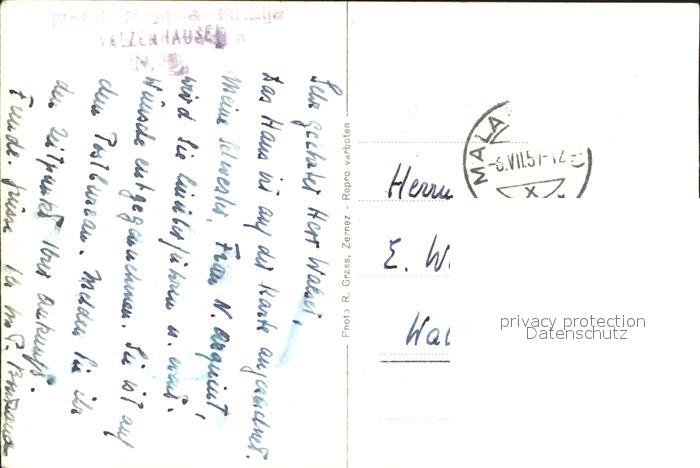 Hotel Post &
WALZENHAUSEN
Sehr geehrter Herr Walser,
das Haus ist auf der Karte angezeichnet.
Meine Schwester, Frau N.
wird Sie hinüberführen u. evtl.
Wünsche entgegennehmen. Sie ist auf
dem Postbureau. Melden Sie ihr
den Zeitpunkt Ihrer Ankunft.
Photo R. Grass, Zernez - Repro verboten
MALA
-6.VII.51-12
X
Herrn
E. W
Wal
privacy protection
Datenschutz